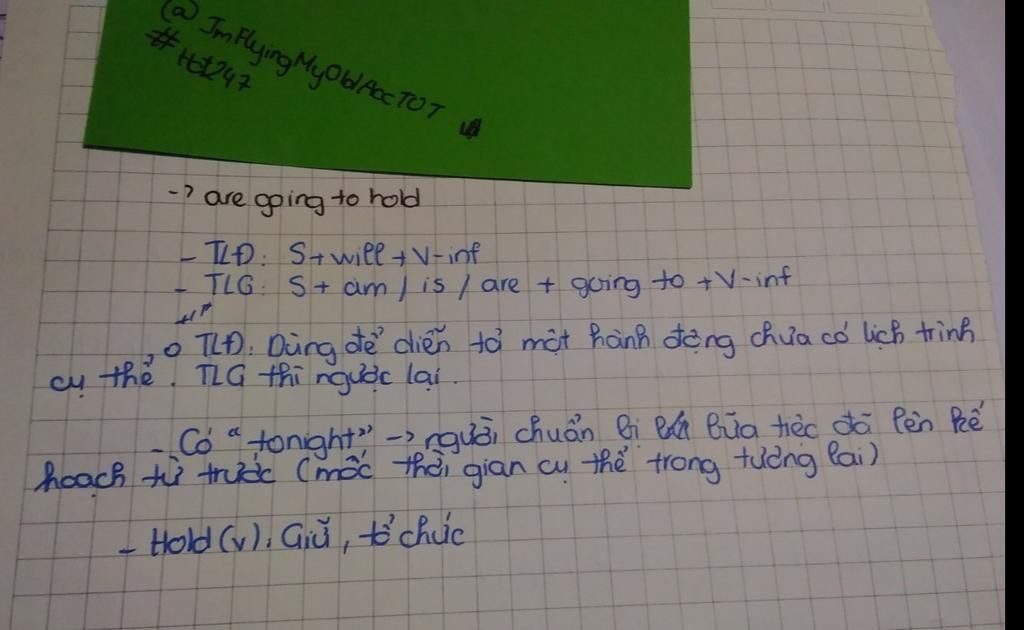 @ JmFlyingMyOldAccTOT
#Hot247
-> are going to hold
- TLĐ: S + will + V-inf
- TLG: S + am / is / are + going to + V-inf
o TLĐ: Dùng để diễn tả một hành động chưa có lịch trình
cụ thể. TLG thì ngược lại.
- Có "tonight" -> người chuẩn bị bữa tiệc đã lên kế
hoạch từ trước (mốc thời gian cụ thể trong tương lai)
- Hold (v): Giữ, tổ chức